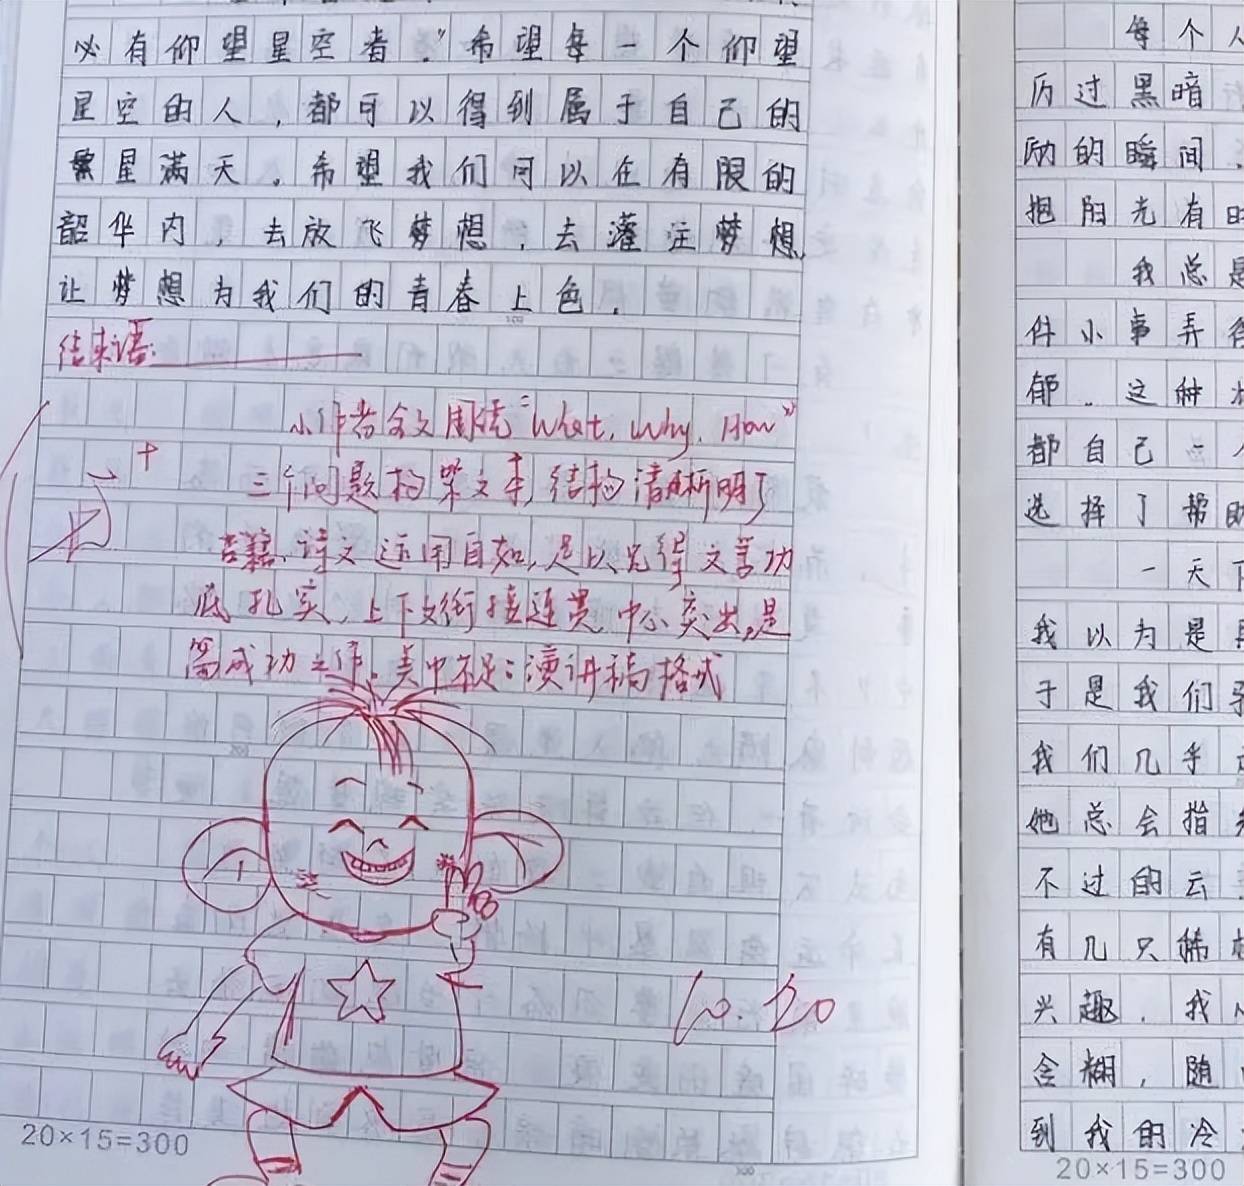 必有仰望星空者。”希望每一个仰望
星空的人，都可以得到属于自己的
繁星满天。希望我们可以在有限的
韶华内，去放飞梦想，去灌注梦想，
让梦想为我们的青春上色。
结束语：
小作者全文围绕“What, Why, How”
三个问题构架文章，结构清晰明了
古籍、诗文运用自如，足以见得文言功
底扎实，上下文衔接连贯，中心突出，是
篇成功之作。美中不足：演讲稿格式
10.20
20×15=300
每个人
历过黑暗
励的瞬间，
抱阳光有时
我总是
件小事弄得
郁。这种
都自己
选择了帮助
一天下
我以为是
于是我们
我们几乎
她总会指
不过的云
有几只
兴趣，我
含糊，随
到我的冷
20×15=300